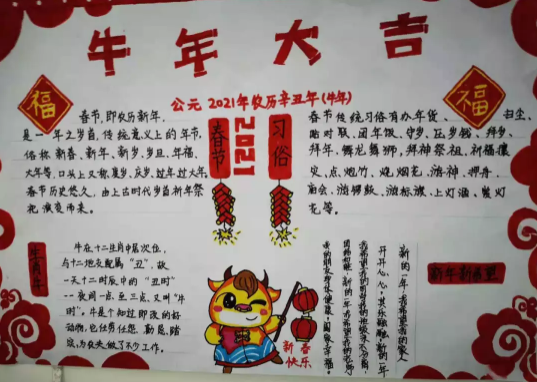 牛年大吉
公元 2021年农历辛丑年(牛年)
福
福
春节
2021
习俗
春节,即农历新年,
是一年之岁首,传统意义上的年节,
俗称新春、新年、新岁、岁旦、年禧、
大年等,口头上又称度岁、庆岁、过年、过大年,
春节历史悠久,由上古时代岁首祈年祭
祀演变而来。
春节传统习俗有办年货、扫尘、
贴对联、团年饭、守岁、压岁钱、拜岁、
拜年、舞龙舞狮、拜神祭祖、祈福攘
灾、点炮竹、烧烟花、游神、押舟、
庙会、游锣鼓、游标旗、上灯酒、赏灯
花等。
牛在十二生肖中居次位,
与十二地支配属“丑”,故
一天十二时辰中的“丑时”
一夜间一点至三点,又叫“牛
时”。牛是个知过即改的好
动物,也任劳任怨、勤恳、踏
实,为农夫做了不少工作。
生肖牛
新春
快乐
新年新希望
新的一年,我希望我的家人
开开心心,其乐融融,新的一年